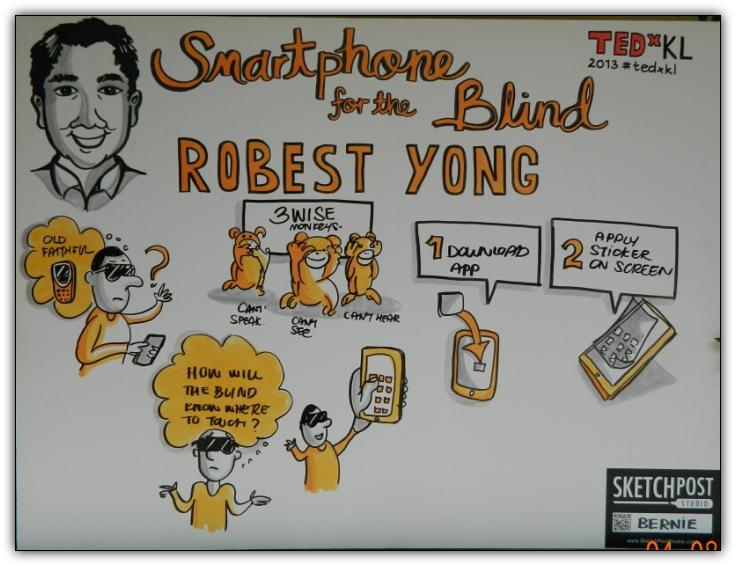 Smartphone
for the Blind
TEDxKL
2013 #tedxkl
ROBEST YONG
OLD
FAITHFUL
?
3 WISE
MONKEYS-
CAN'T
SPEAK
CAN'T
SEE
CAN'T HEAR
1 DOWNLOAD
APP
2 APPLY
STICKER
ON SCREEN
HOW WILL
THE BLIND
KNOW WHERE
TO TOUCH?
SKETCHPOST
STUDIO
BERNIE
www.SketchPostStudio.com